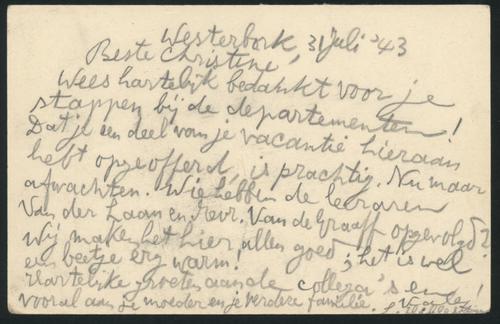 Westerbork, 31 Juli '43
Beste Christine,
Wees hartelijk bedankt voor je
stappen bij de departementen!
Dat je een deel van je vacantie hieraan
hebt opgeofferd, is prachtig. Nu maar
afwachten. Wie hebben de leeraren
Van der Laan en Jevr. Van de Graaff opgevolgd?
Wij maken het hier allen goed; het is wel
een beetje erg warm!
Hartelijke groeten aan de collega's en
vooral aan je moeder en je verdere familie.